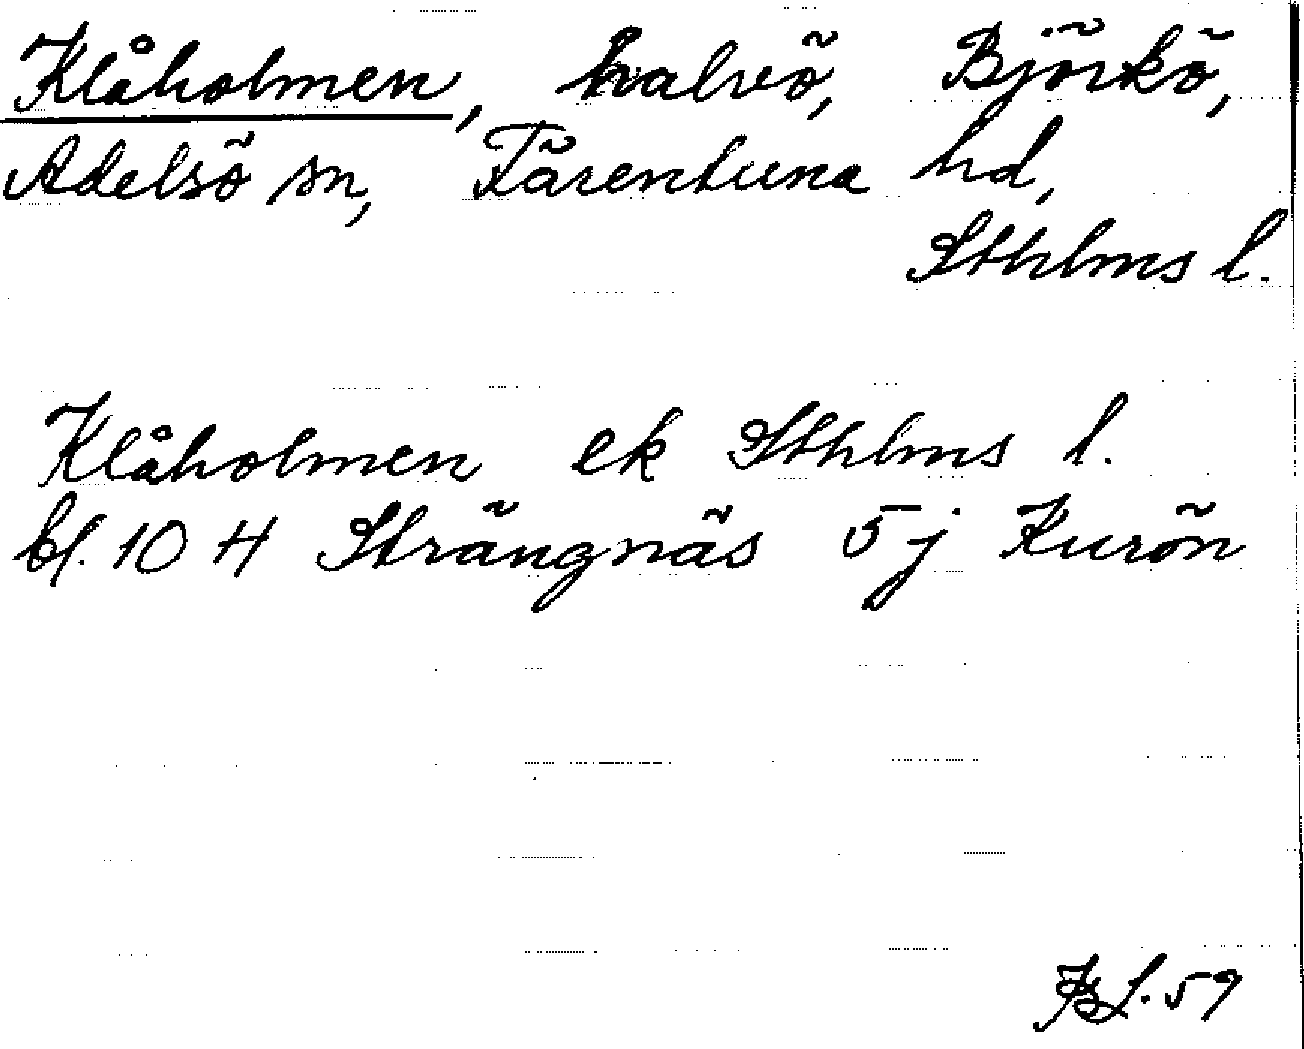 Klåholmen, halvö, Björkö,
Adelsö sn, Färentuna hd,
Sthlms l.
Klåholmen ek Sthlms l.
bl. 10 H Strängnäs 5j Kurön